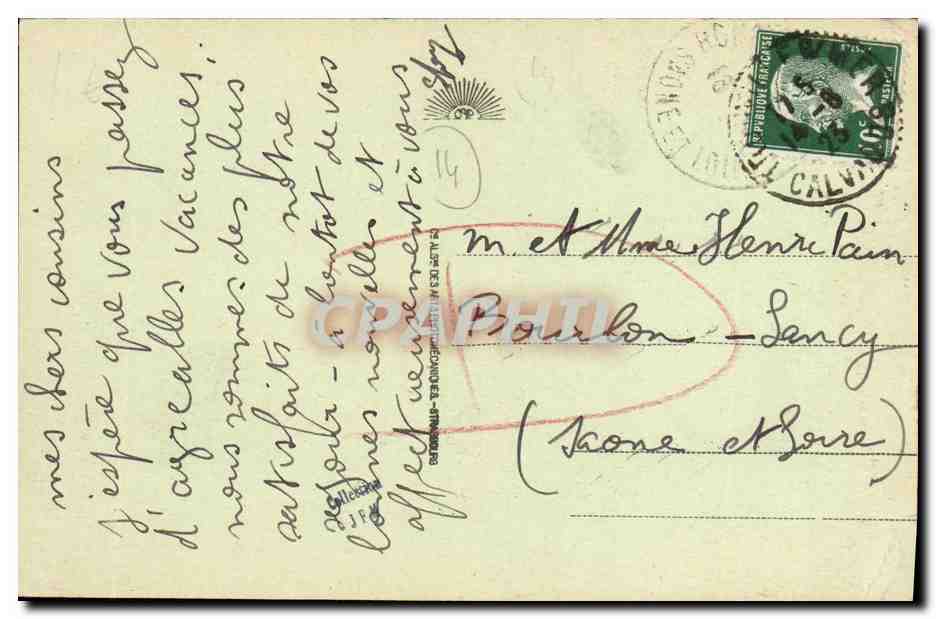 mes chers cousins
j'espère que vous passez
d'agréables vacances.
nous sommes des plus
satisfaits de notre
séjour - à bientôt de vos
bonnes nouvelles et
affectueusement à vous
14
Cie ALSne DES ARTS PHOTOMÉCANIQUES. - STRASBOURG
Collection
JFM
CPAPHIL
M. et Mme Henri Pain
Bourbon - Lancy
(Saone et Loire)
REPUBLIQUE FRANÇAISE
PASTEUR
10c
CALVADOS